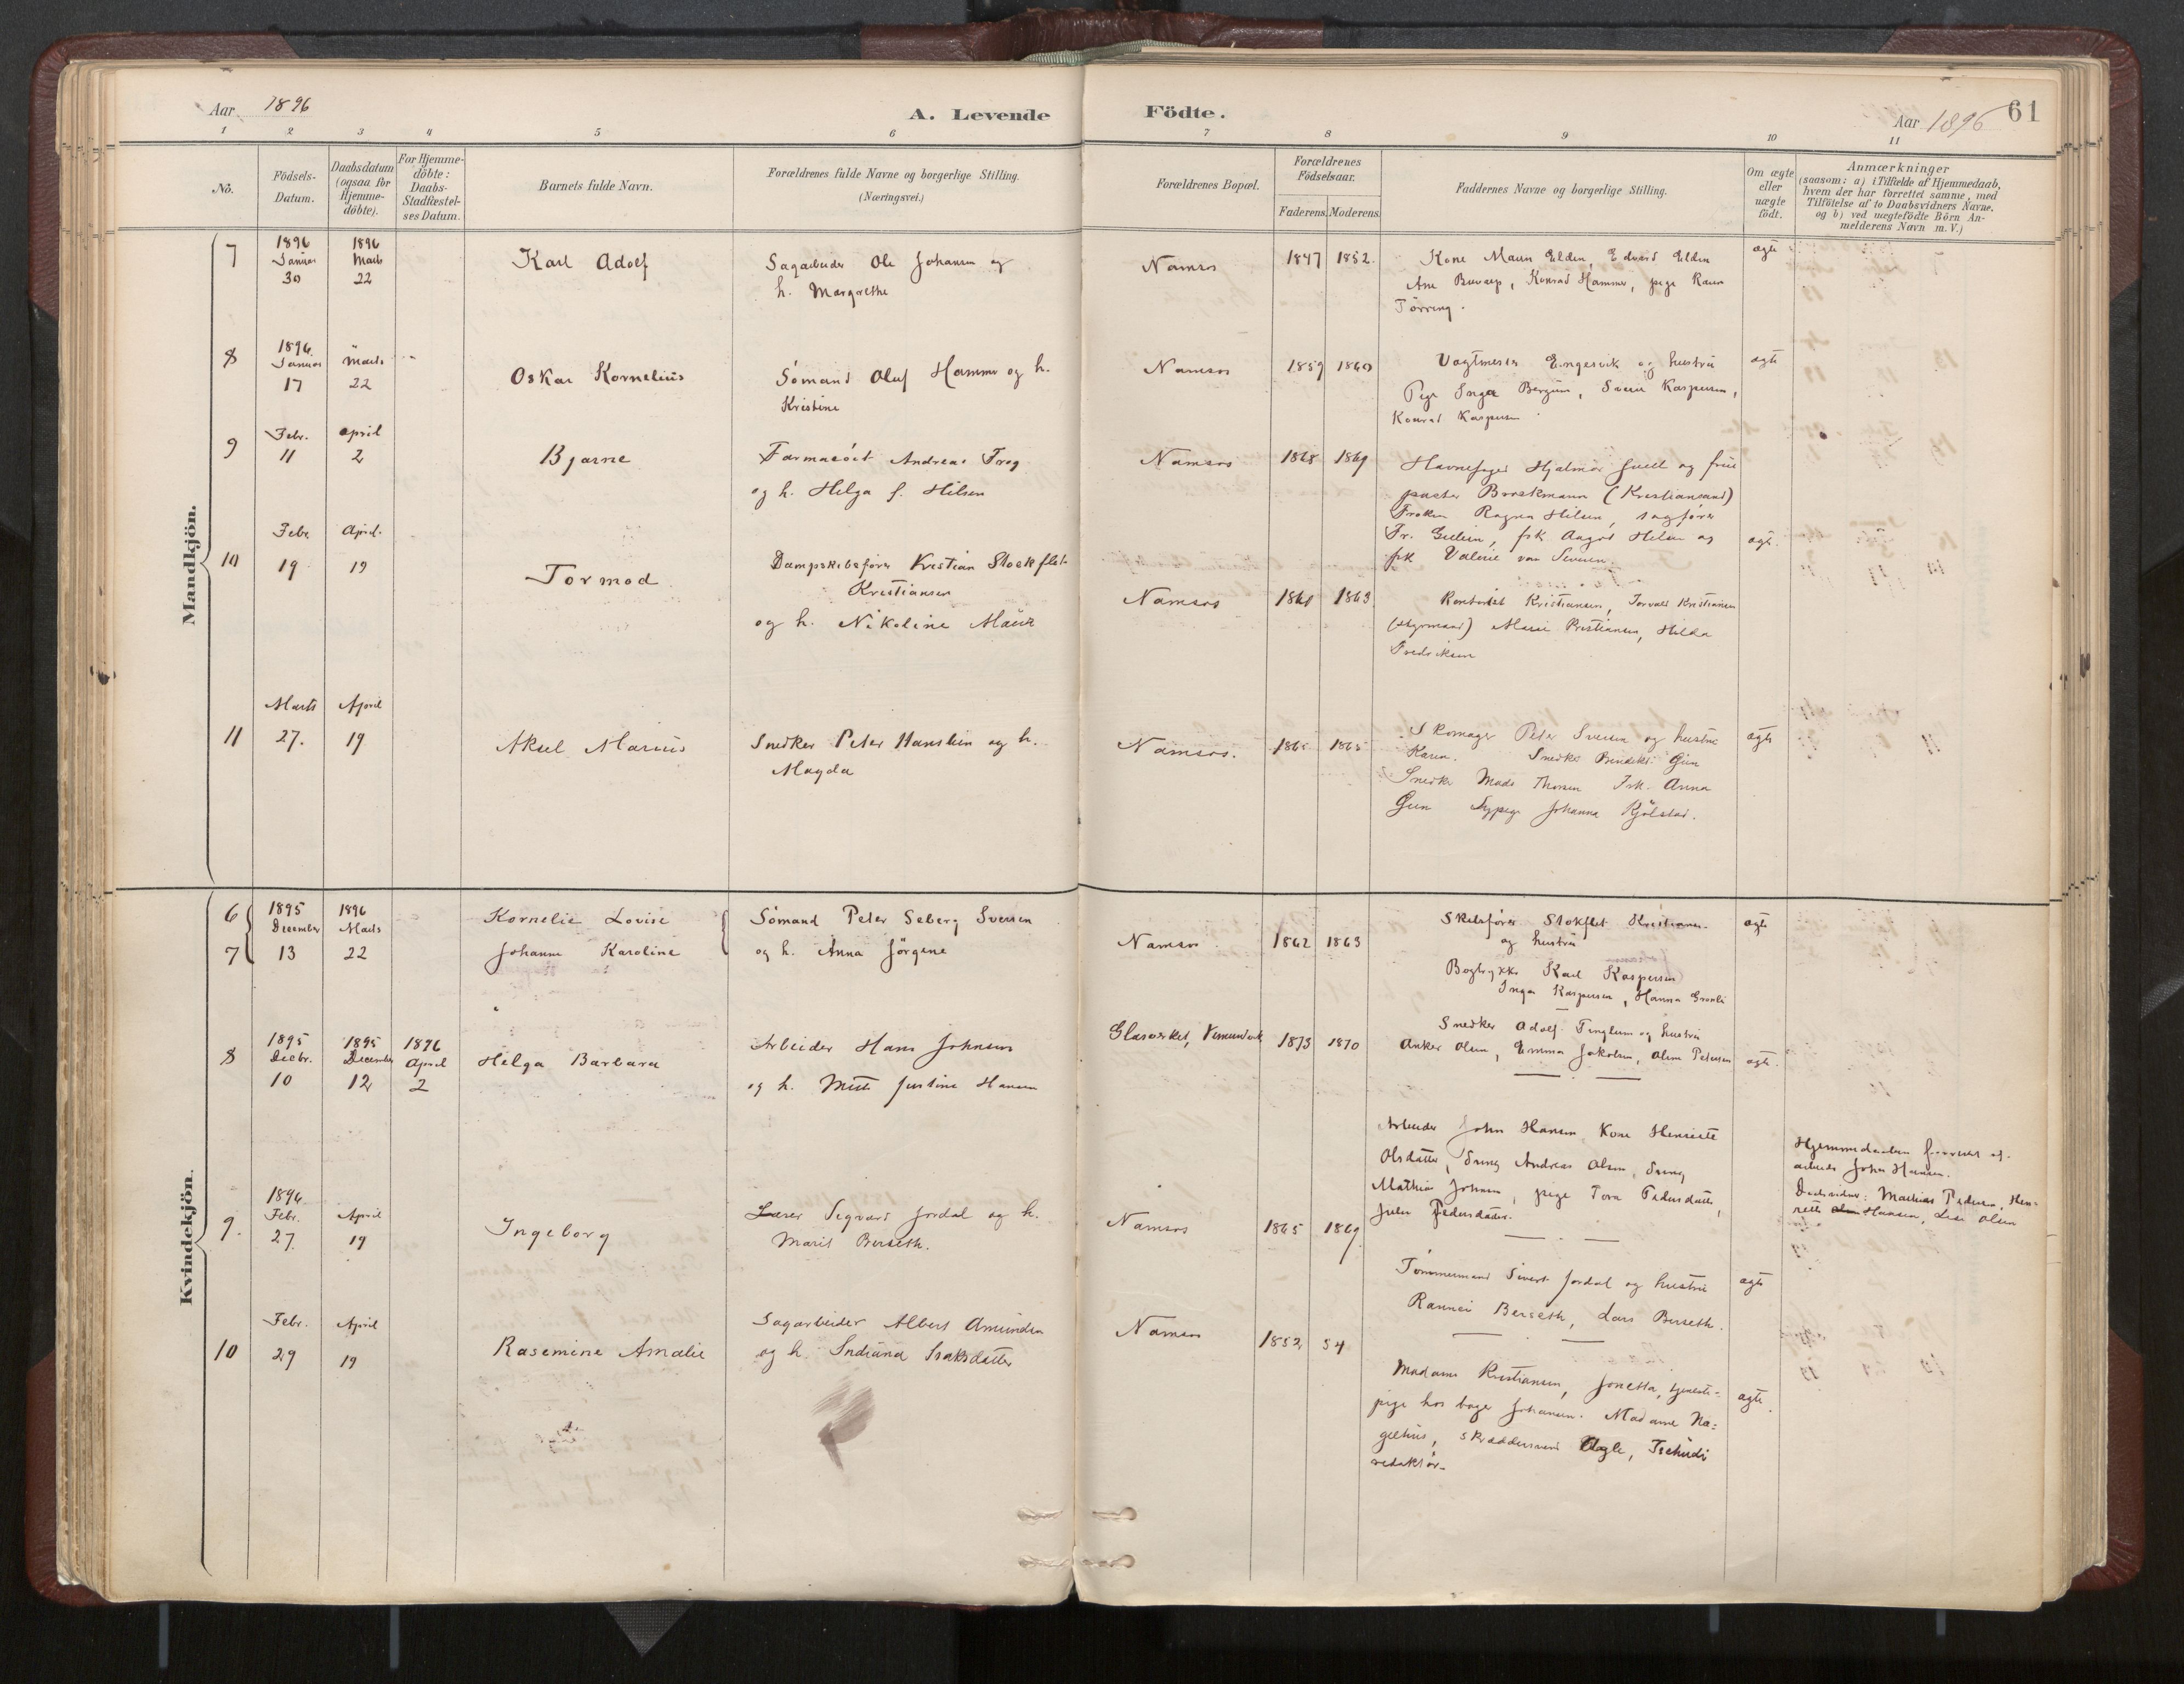 Aar 1896
A. Levende
Födte.
Aar 1896
61
1 2 3 4 5 6 7 8 9 10 11
No.
Födsels-
Datum.
Daabsdatum
(ogsaa for
Hjemme-
döbte).
For Hjemme-
döbte:
Daabs-
Stadfæstel-
ses Datum.
Barnets fulde Navn.
Forældrenes fulde Navne og borgerlige Stilling.
(Næringsvei.)
Forældrenes Bopæl.
Forældrenes
Födselsaar.
Faderens. Moderens.
Faddernes Navne og borgerlige Stilling.
Om ægte
eller
uægte
födt.
Anmærkninger
(saasom: a) i Tilfælde af Hjemmedaab,
hvem der har forrettet samme, med
Tilföielse af to Daabsvidners Navne,
og b) ved uægtefödte Börn An-
melderens Navn m. V.)
Mandkjön.
7
1896
Januar
30
1896
Marts
22
Karl Adolf
Sagarbeider Ole Johansen og
h. Margrethe
Namsos
1847 1852.
Kone Elden, Edvard Elden
Ane Konrad Hammer, pige
Törring.
ægte
8
1896
Januar
17
Marts
22
Oskar Kornelius
Sömand Oluf Hammer og h.
Kristine
Namsos
1859 1860
Vagtmester Engesvik og hustru
Pige Inga Bergum, Kaspersen,
Konrad Kaspersen
ægte
9
Febr.
11
April
2
Bjarne
Farmaceut Andreas Trog
og h. Helga f. Hilsen
Namsos
1868 1869
Havnefoged Hjalmar Juell og frue
pastor (Kristiansand)
Frøken Ragna Hilsen, sagfører
Fr. frk Hilsen og
frk Valerie van Severen
ægte.
10
Febr.
19
April.
19
Tormod
Dampskibsfører Kristian Stockflet-
Kristiansen
og h. Nikoline
Namsos
1861 1863
Kristiansen, Torvald Kristiansen
(styrmand) Kristiansen, Hilda
Fredriksen
11
Marts
27.
April
19
Aksel Marius
Snedker Peter Hanslien og h.
Magda
Namsos.
1865 1865
Skomager Peder Iversen og hustru
Karen. Snedker
Snedker Mads Thorsen Frk. Anna
Sypige Johanna Kjölstad.
ægte
Kvindekjön.
6
7
1895
December
13
1896
Marts
22
Kornelie Lovise
Johanne Karoline
Sömand Peter Seberg Iversen
og h. Anna Jörgine
Namsos
1862 1863
Skibsfører Stokflet Kristiansen
og hustru
Bogtrykker Karl Kaspersen
Inga Kaspersen, Hanna
ægte
8
1895
Decbr.
10
1895
December
12
1896
April
2
Helga Barbara
Arbeider Hans Johnsen
og h. Mette Justine Hansen
Glasværket, Vemundvik
1873 1870
Snedker Adolf Tinglum og hustru
Anker Olsen, Emma Jakobsen, Oline Petersen
ægte.
Arbeider John Hansen Kone Henriette
Olsdatter, Andreas Olsen,
Mathias Johnsen, pige Tora Pedersdatter,
Pedersdatter.
Hjemmedaaben forrettet af
arbeider John Hansen.
Daabsvidner: Mathias Pedersen, Hen-
riette Hansen, Lise Olsen
9.
1896
Febr.
27.
April
19
Ingeborg
Lærer Sigvard Jordal og h.
Marit Berseth.
Namsos
1865 1869
Tømmermand Sivert Jordal og hustru
Rannei Berseth, Lars Berseth.
ægte
10
Febr.
29
April
19
Rasemine Amalie
Sagarbeider Albert Amundsen
og h. Indiana Isaksdatter
Namsos
1852 54
Madame Kristiansen, Jonetta, tjeneste-
pige hos bager Johansen. Madame Na-
gelhus, skræddersvend Aagle, Tschudi
redaktør-
ægte.